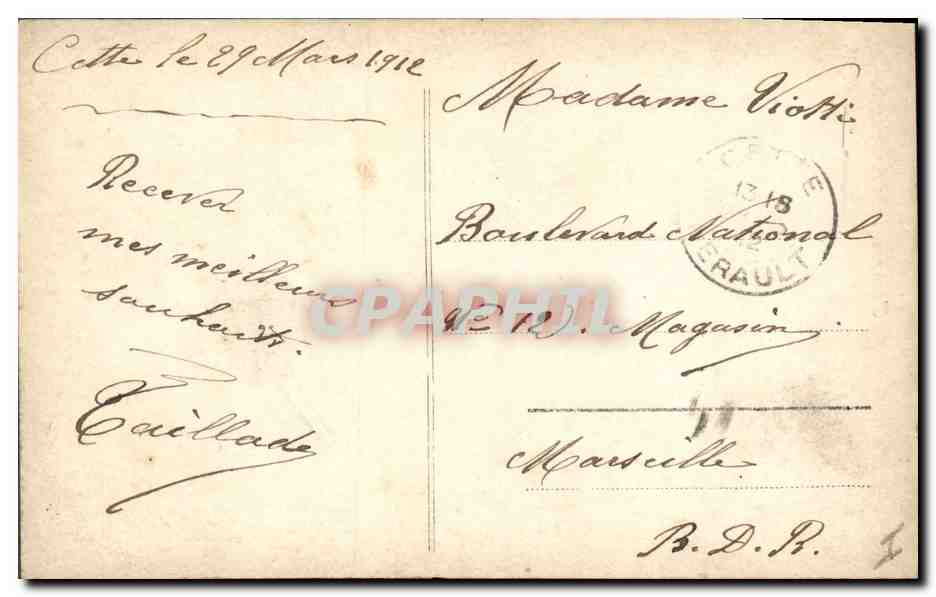 Cette le 29 Mars 1912
Recever
mes meilleurs
souhaits.
Taillade
Madame Viotti
Boulevard National
No 12 . Magasin
Marseille
B. D. R.
CETTE
13
12
ERAULT
CPAPHIL